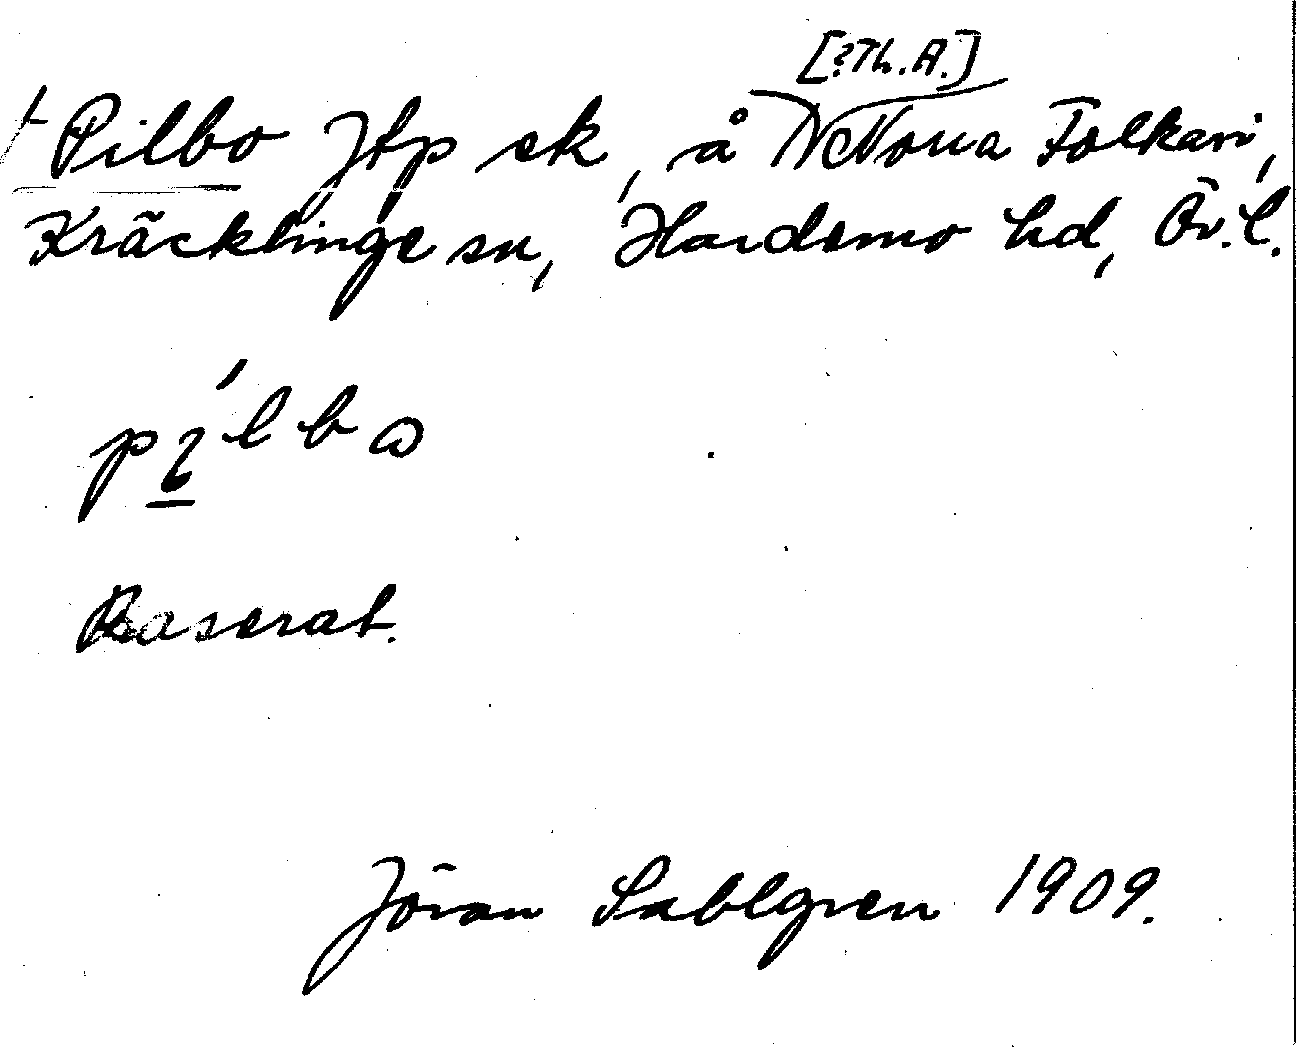 [?Th.A.]
† Pilbo Jtp sk, å N Norra Folkavi,
Kräcklinge sn, Hardemo hd, Ör.l.
Raserat.
Jöran Sahlgren 1909.